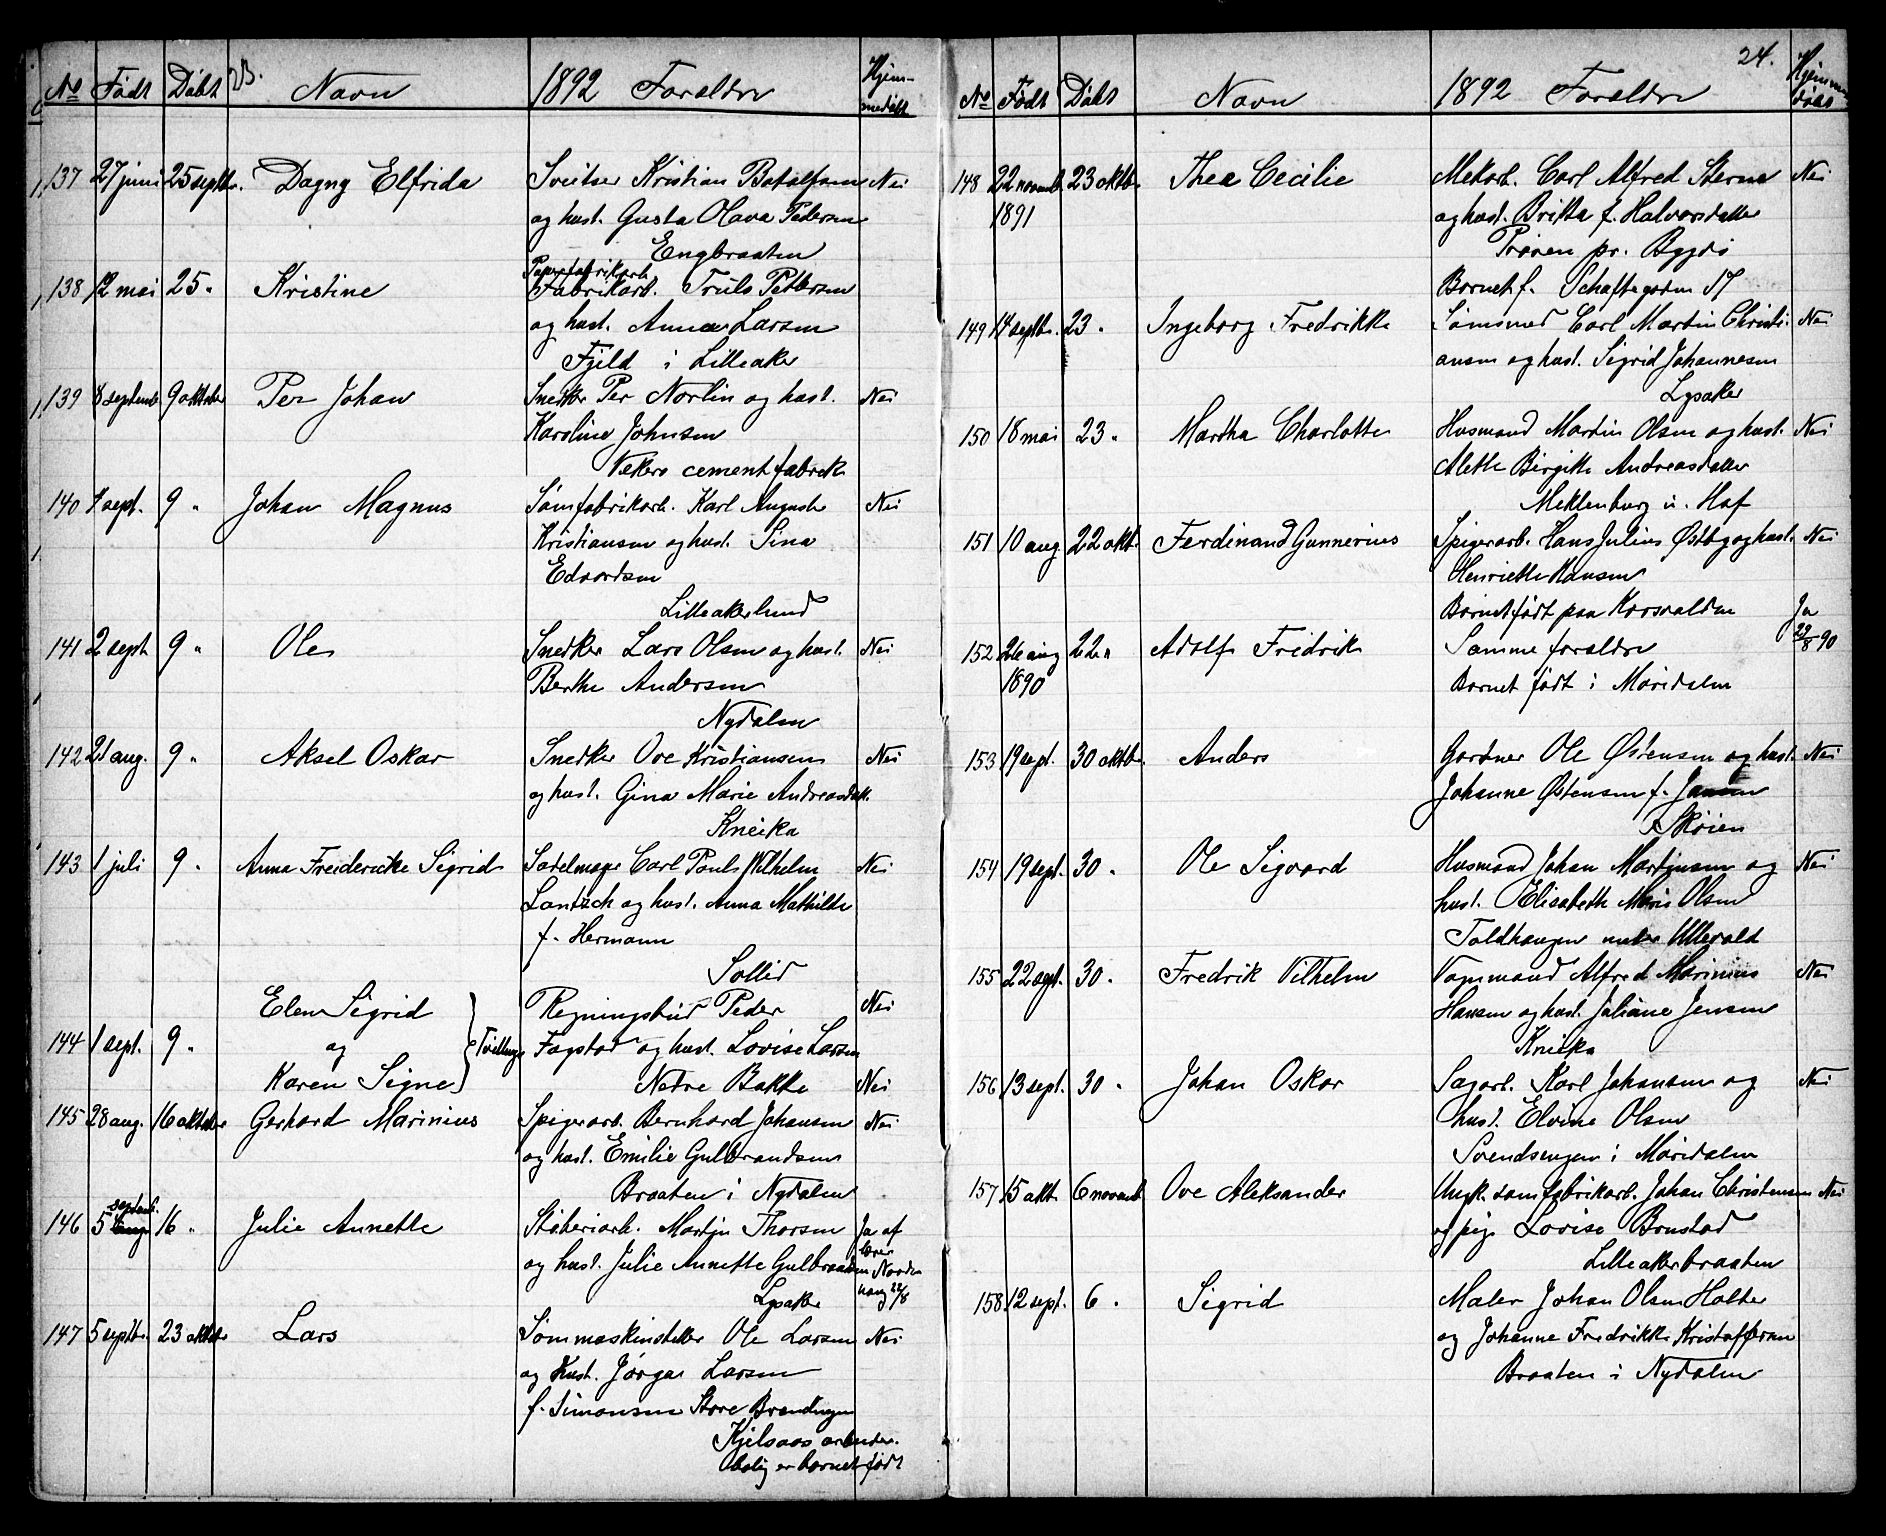 No Født Døbt B. Navn 1892 Foraldre Hjem-
medøbt
137 27 juni 25 septbr. Dagny Elfrida Sveitser Kristian Botolfsen Nei
og hust. Gusta Olava Pedersen
Engbraaten
138 12 mai 25 " Kristine Fabrikarb. Truls Pettersen
og hust. Anna Larsen
Fjeld i Lilleaker
139 8 septemb. 9 oktober Per Johan Snedker Per Norlin og hust. Nei
Karoline Johnsen
Vekerø cementfabrik
140 1 sept. 9 " Johan Magnus Sømfabrikarb. Karl August Nei
Kristiansen og hust. Sina
Edvardsen
Lilleakerlund
141 2 sept 9 " Ole Snedker Lars Olsen og hust. Nei
Berthe Andersen
Nydalen
142 21 aug. 9 " Aksel Oskar Snedker Ove Kristiansen Nei
og hust. Gina Marie Andreasdatt.
Kneika
143 1 juli 9 " Anna Freidericke Sigrid Sadelmager Carl Pauls Wilhelm Nei
Lantzsch og hust. Anna Mathilde
f. Hermann
Sollid
Elen Sigrid Regningsbud Peder Nei
144 1 sept. 9 " og Tvillinger Fagstad og hust. Lovise Larsen
Karen Signe Nedre Bakke Nei
145 28 aug. 16 oktober Gerhard Marinius Spigerarb. Bernhard Johansen Nei
og hust. Emilie Gulbrandsen
Braaten i Nydalen
septemb.
146 5 16 " Julie Annette Støberiarb. Martin Thorsen Ja af
og hust. Julie Annette Gulbrandsen
Lysaker 22/8
147 5 septbr. 23 oktober Lars Sømmaskinstiller Ole Larsen Nei
og Hust. Jørgine Larsen
f. Simonsen Store Brændengen
Kjelsaas arbeider-
bolig er barnet født
24.
No Født Døbt Navn 1892 Foraldre Hjemme
døbt
148 22 novemb. 23 oktbr. Thea Cecilie Mekarb. Carl Alfred Sterner Nei
1891 og hust. Britta f. Halvorsdatter
Prøven pr. Bygdø
Barnet f. Schaftegaden 17
149 14 septbr. 23 " Ingeborg Fredrikke Sømsmed Carl Martin Christi- Nei
ansen og hust. Sigrid Johannesen
Lysaker
150 18 mai 23 " Martha Charlotte Husmand Martin Olsen og hust. Nei
Alette Birgitte Andreasdatter
Meklenburg u. Haf
151 10 aug. 22 okt. Ferdinand Gunnerius Spigerarb. Hans Julius Østby og hust. Nei
Henriette Hansen
Barnet født paa Korsvolden
152 26 aug 22 " Adolf Fridrik Samme foraldre Ja 22/8 90
1890 Barnet født i Maridalen
153 19 sept. 30 oktbr. Anders Gartner Ole Østensen og hust. Nei
Johanne Østensen f. Jansen
Skøien
154 19 sept. 30 " Ole Sigvard Husmand Johan Martinsen og Nei
hust. Elisabeth Marie Olsen
Toldhaugen under Ullevold
155 22 sept. 30 " Fredrik Vilhelm Vognmand Alfred Marinius Nei
Hansen og hust. Juliane Jensen
Kneika
156 13 sept. 30 " Johan Oskar Sagarb. Karl Johansen og Nei
hust. Elvine Olsen
Svendsengen i Maridalen
157 15 okt. 6 novemb. Ove Aleksander Ungk. sømfabrikarb. Johan Christensen Nei
og pige Lovise Bonstad
Lilleakerbraaten
158 12 sept. 6 " Sigrid Maler Johan Olsen Holter
og Johanne Fredrikke Kristoffersen
Braaten i Nydalen